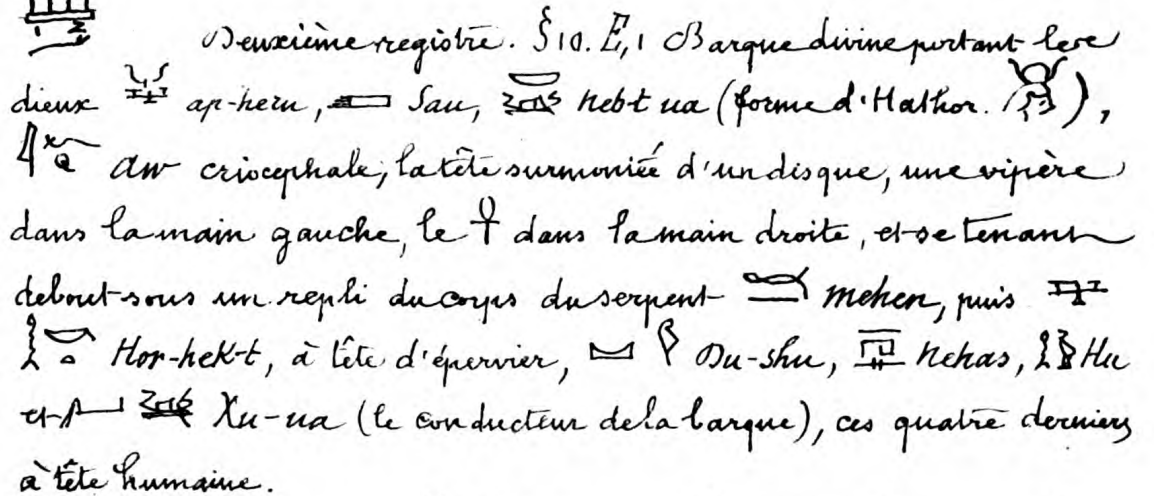 1 2
Deuxième registre. § 10. E, 1 Barque divine portant les
dieux ap-heru, Sau, neb-t ua (forme d'Hathor. ),
aw criocephale, la tête surmontée d'un disque, une vipère
dans la main gauche, le ☥ dans la main droite, et se tenant
debout sous un repli du corps du serpent mehen, puis
Hor-hek-t, à tête d'épervier, Du-shu, Nehas, Hu
et Xu-ua (le conducteur de la barque), ces quatre derniers
à tête humaine.